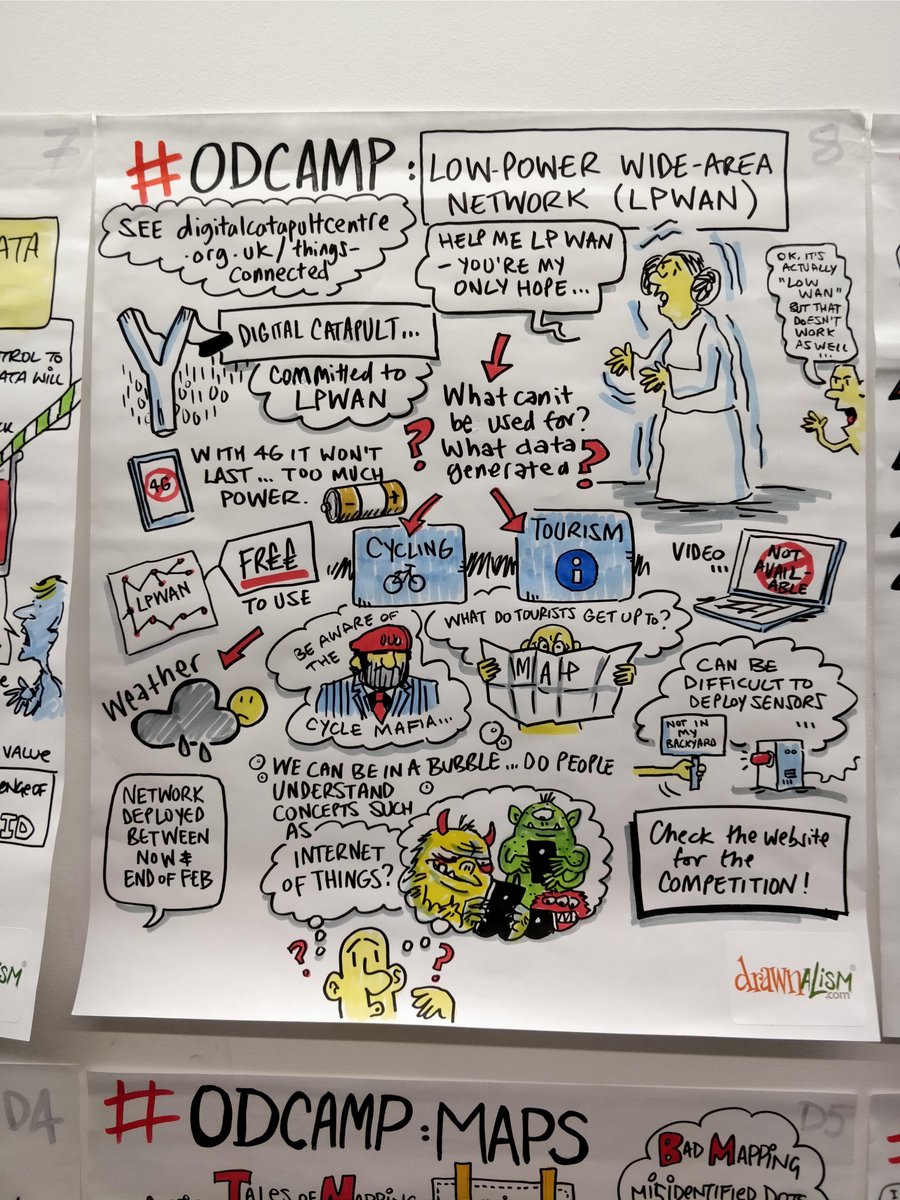 7
8
#ODCAMP:
LOW-POWER WIDE-AREA
NETWORK (LPWAN)
SEE digitalcatapultcentre
.org.uk/things-
connected
HELP ME LP WAN
- YOU'RE MY
ONLY HOPE...
OK, IT'S
ACTUALLY
"LOW
WAN"
BUT THAT
DOESN'T
WORK
AS WELL
...
DIGITAL CATAPULT...
COMMITTED TO
LPWAN
What can it
be used for?
What data
generated?
WITH 4G IT WON'T
LAST... TOO MUCH
POWER.
4G
- +
LPWAN
FREE
TO USE
CYCLING
TOURISM
i
VIDEO
...
NOT
AVAIL-
ABLE
Weather
BE AWARE OF
THE
CYCLE MAFIA...
WHAT DO TOURISTS GET UP TO?
MAP
CAN BE
DIFFICULT TO
DEPLOY SENSORS
...
NOT IN
MY
BACKYARD
NETWORK
DEPLOYED
BETWEEN
NOW &
END OF FEB
WE CAN BE IN A BUBBLE... DO PEOPLE
UNDERSTAND
CONCEPTS SUCH
AS
INTERNET
OF THINGS?
? ?
Check the website
for the
COMPETITION!
drawnalism
.com
ATA
TROL TO
ATA WILL
CK
VALUE
ENGE OF
ID
ISM
D4
#ODCAMP: MAPS
D5
TALES OF MAPPING
BAD MAPPING
MISIDENTIFIED